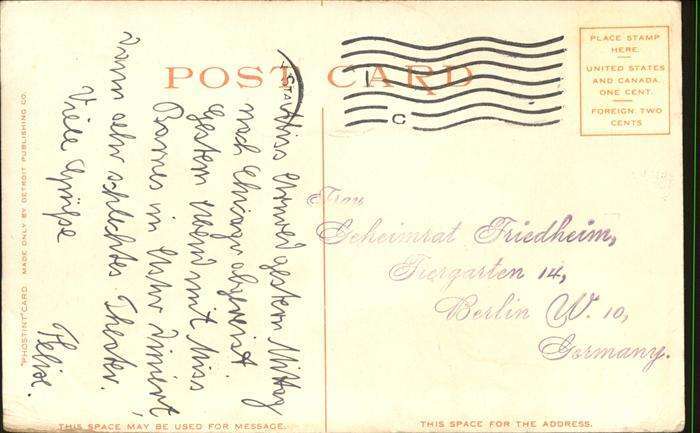 POST CARD
PLACE STAMP
HERE.
UNITED STATES
AND CANADA.
ONE CENT.
FOREIGN TWO
CENTS
C
Miss gestern Mittag
nach Chicago abgereist
Gestern Abend mit Miss
Barnes in
dann sehr schlechtes Theater.
Viele Grüße
Felix.
Frau
Geheimrat Friedheim,
Tiergarten 14,
Berlin W. 10,
Germany.
"PHOSTINT" CARD MADE ONLY BY DETROIT PUBLISHING CO.
THIS SPACE MAY BE USED FOR MESSAGE.
THIS SPACE FOR THE ADDRESS.